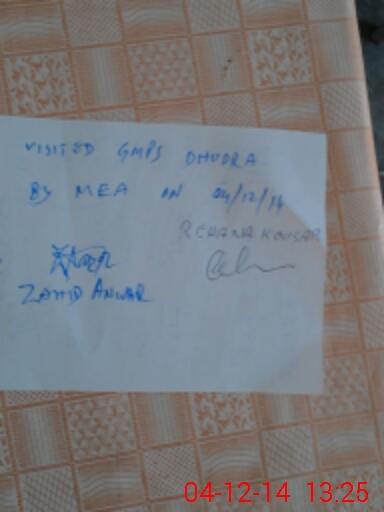 VISITED GMPS DHUDRA
BY MEA ON 04/12/14
REHANA KOUSAR
ZAHID ANWAR
04-12-14 13:25